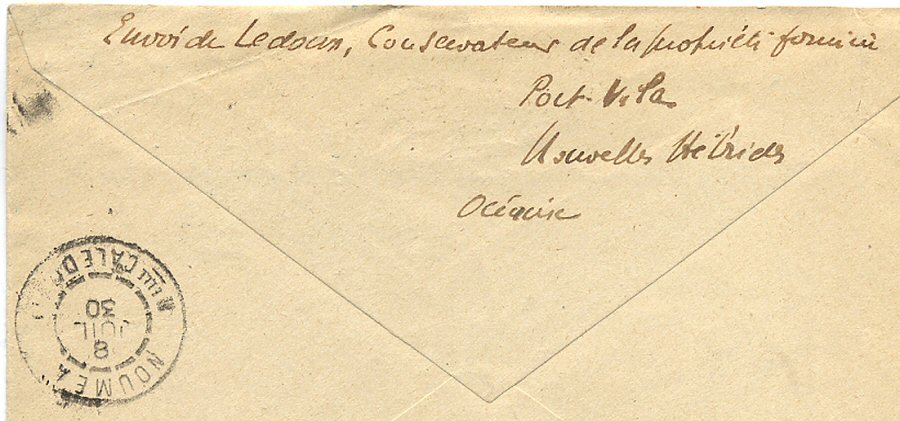 Envoi de Ledoux, Conservateur de la propriété foncière
Port-Vila
Nouvelles Hébrides
Océanie
NOUMEA
8
JUIL
30
Nlle CALED